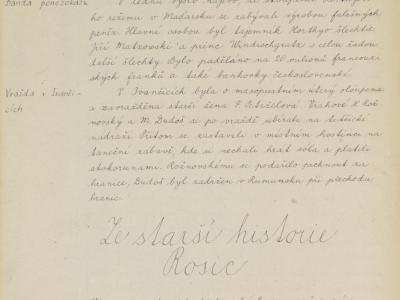 Banda penězokazů
V lednu vyšlo najevo, že stoupenci
ho režimu v Maďarsku se zabývali výrobou falešných
peněz. Hlavní osobou byl tajemník Horthyo šlechta
Jiří Matzovski a princ Windischgratz s celou řadou
další šlechty. Bylo paděláno na 20 milionů francouz-
ských franků a také bankovky československé.
Vražda v Ivanči-
cích
V Ivančicích byla o masopustním úterý oloupena
a zavražděna starší žena F. Vrahové K. Rož-
novský a M. Dudoš se po vraždě ubírali na tetčické
nádraží. Přitom se zastavili v místním hostinci na
taneční zábavě, kde si nechali hrát sóla a platili
stokorunami. Rožnovskému se podařilo prchnout za
hranice, Dudoš byl zadržen v Rumunsku při přechodu
hranic.
Ze starší historie
Rosic